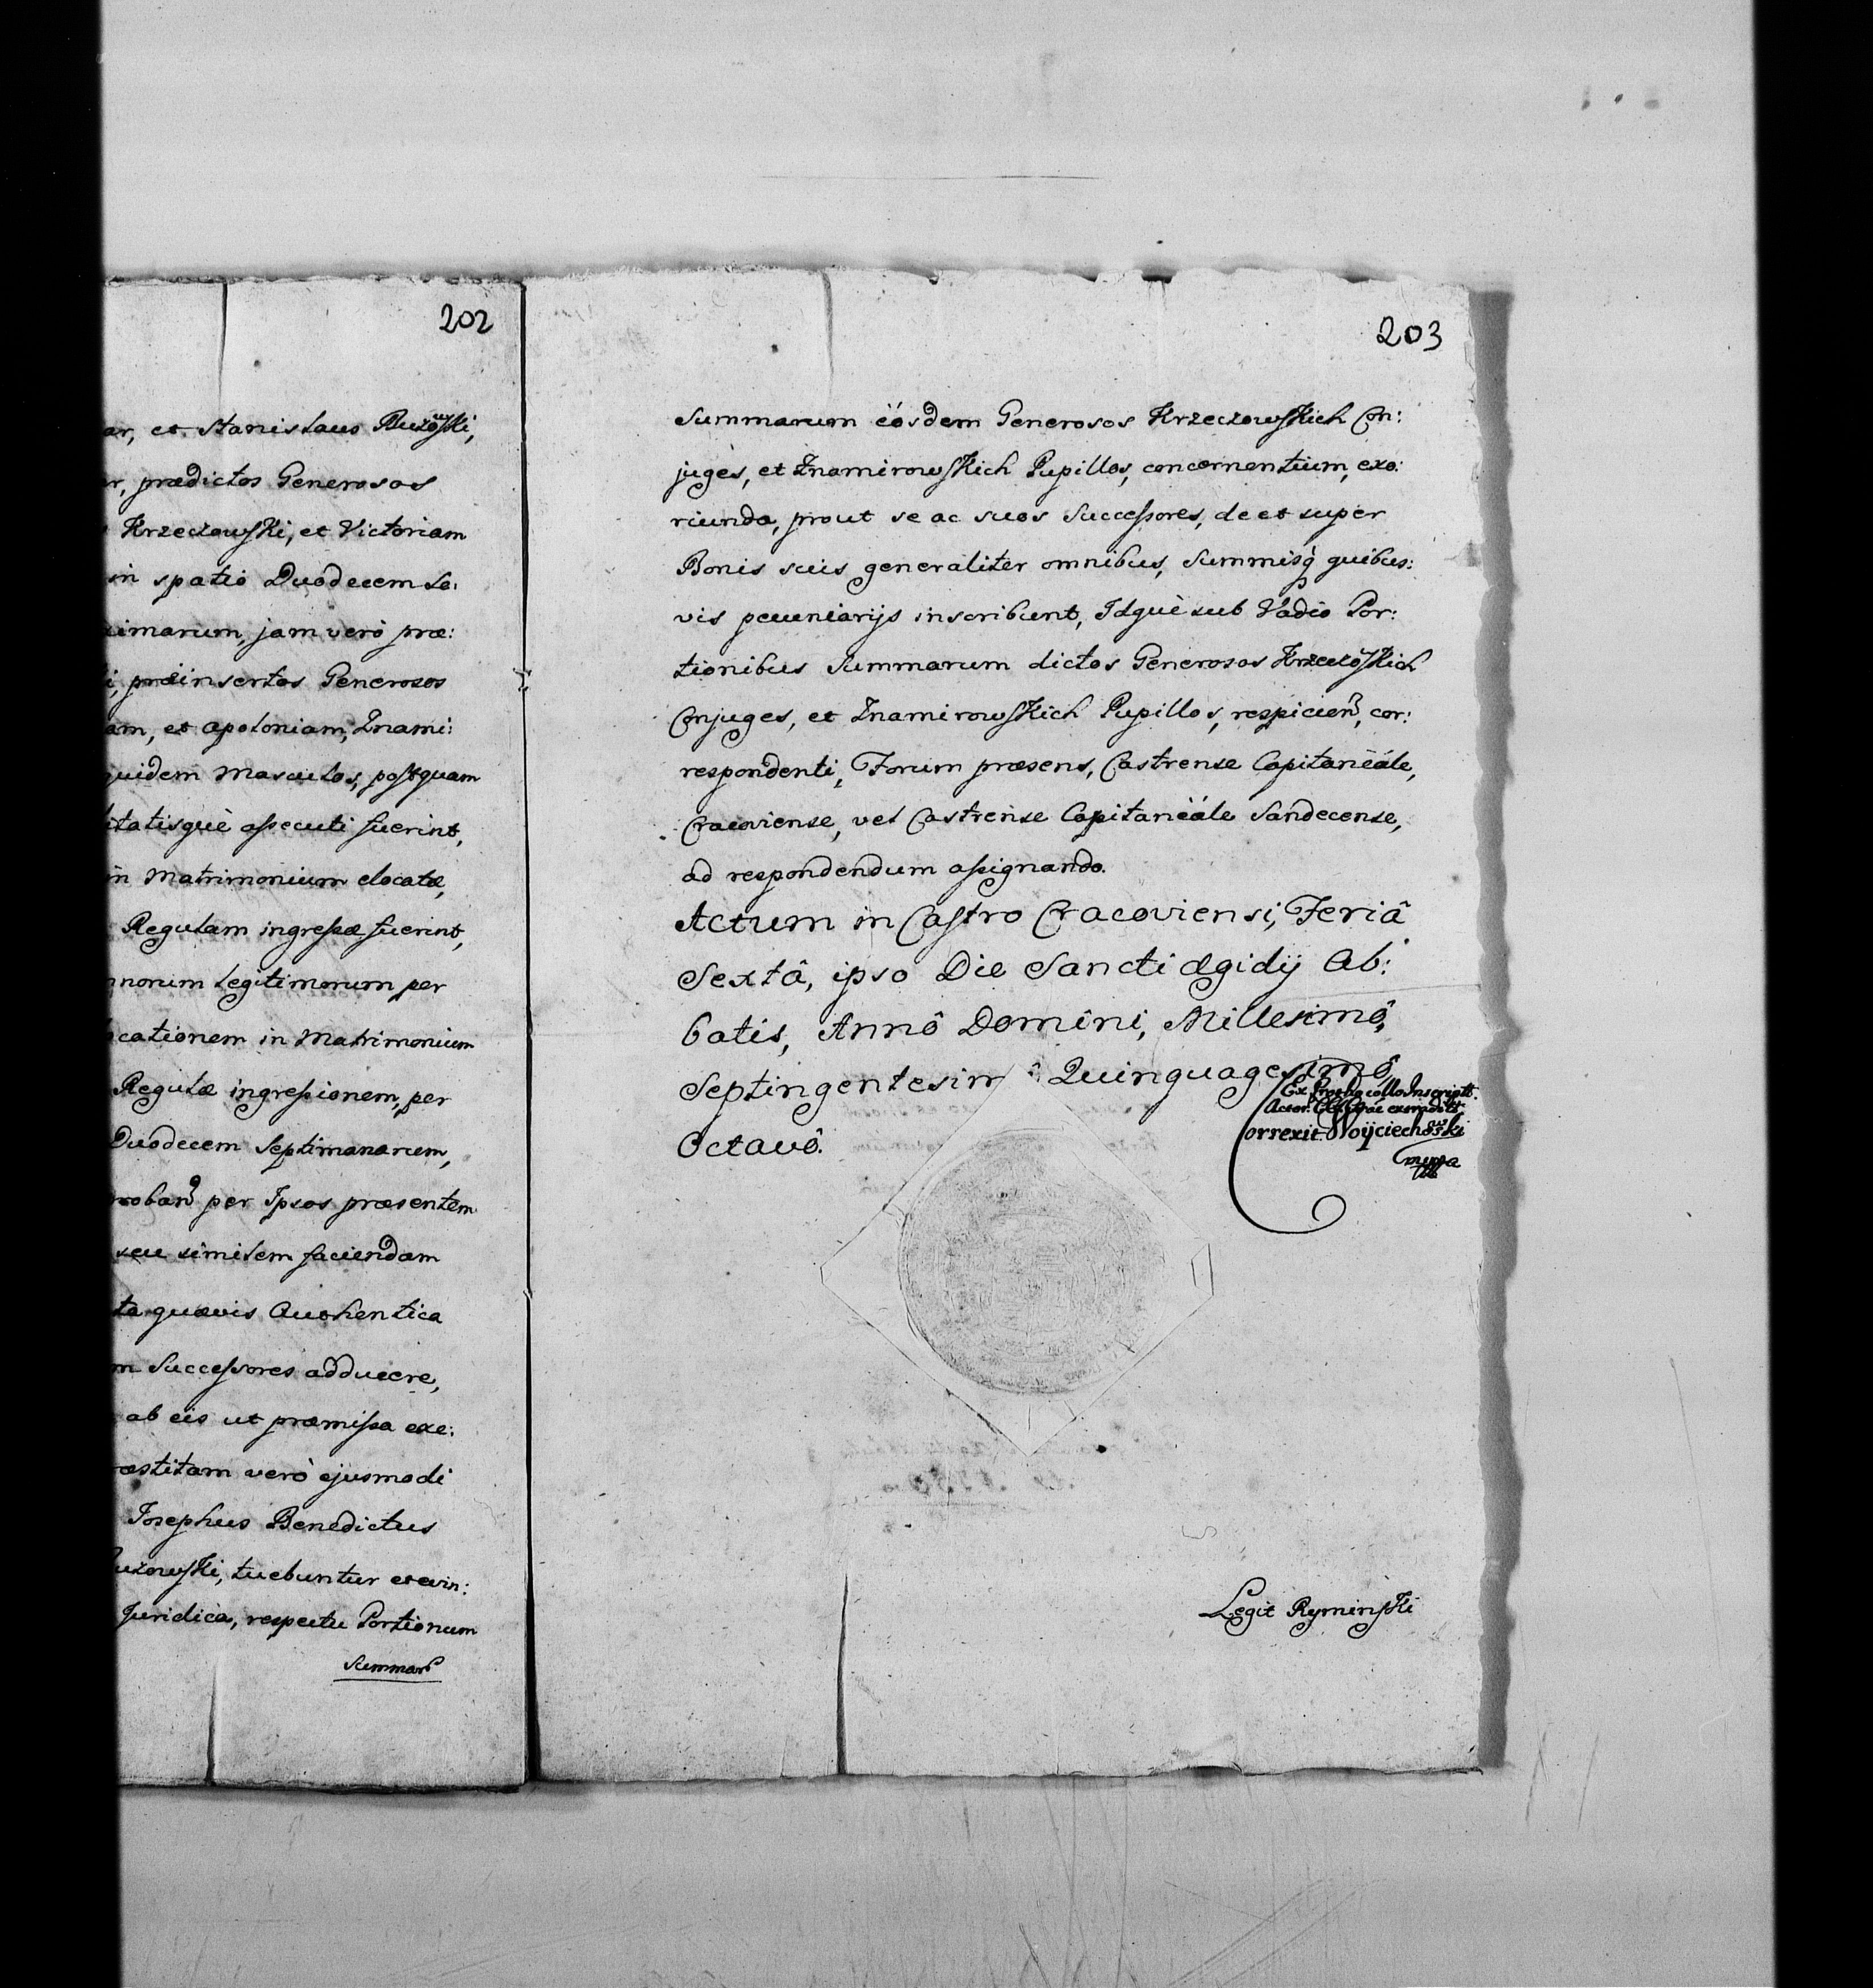 202
ar, et Stanislaus Ruzowski,
er, prædictos Generosos
Krzeczowski, et Victoriam
in spatio Duodecem Se:
timarum, jam verò præ:
i, præinsertos Generosos
am, et Apoloniam, Znami:
quidem Masculos, postquam
itatisquè assecuti fuerint,
in Matrimonium elocatæ,
Regulam ingressæ fuerint,
nnorum Legitimorum per
ocationem in Matrimonium
Regulæ ingressionem, per
Duodecem Septimanarum,
roban per Ipsos præsentem
seu similem faciendam
ta quævis Authentica
m Successores adducere,
ab eis ut præmissa exe:
æstitam verò ejusmodi
Josephus Benedictus
uzowski, tuebuntur et evin:
Juridica, respectu Portionum
Summar
203
Summarum eósdem Generosos Krzeczowskich Con:
juges, et Znamirowskich Pupillos, concernentium, exo:
riunda, prout se ac suos Successores, de et super
Bonis suis generaliter omnibus, Summisq́ quibus:
vis pecuniarijs inscribunt, Idquè sub Vadio Por:
tionibus Summarum dictos Generosos Krzeczowskich
Conjuges, et Znamirowskich Pupillos, respicien, cor:
respondenti, Forum præsens, Castrense Capitaneále,
Cracoviense, vel Castrense Capitaneále Sandecense,
ad respondendum assignando.
Actum in Castro Cracoviensi, Feriâ
Sextâ, ipso Die Sancti Ægidij Ab:
batis, Annô Domini, Millesimô,
Septingentesimô Quinquagesimô,
Octavô.
Ex Prothocollo Inscript.
Correxit Woyciechowski
mppa
Legit Ryminski